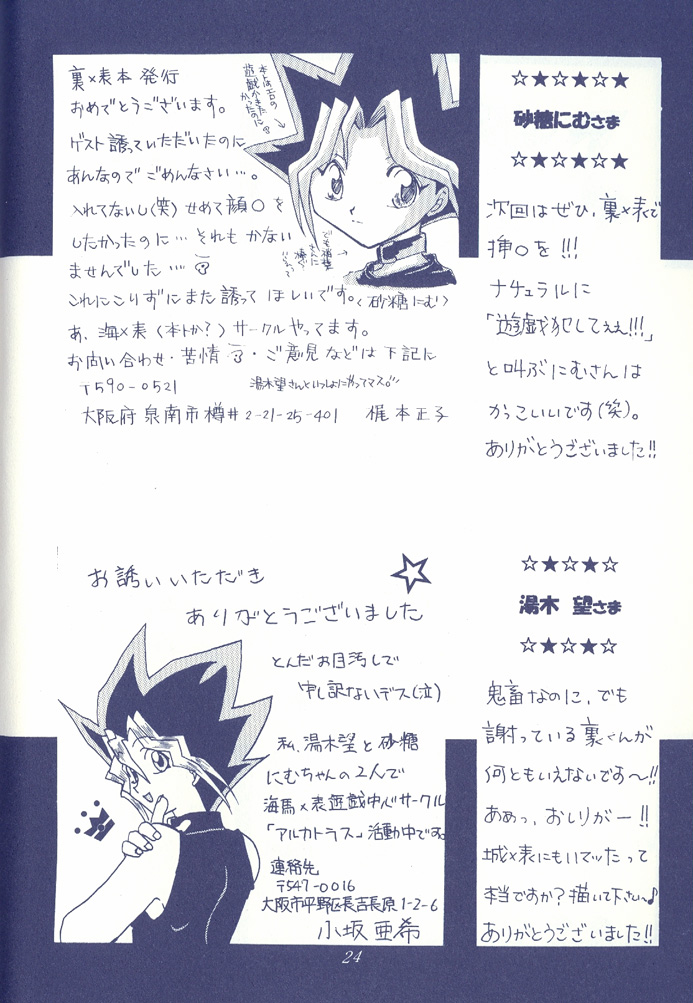 裏×表本 発行
おめでとうございます。
ゲスト誘っていただいたのに
あんなのでごめんなさい…。
入れてないし(笑)せめて顔○を
したかったのに…それもかない
ませんでした…
これにこりずにまた誘ってほしいです。(砂糖にむ)
あ、海×表(本トか?)サークルやってます。
お問い合わせ・苦情・ご意見などは下記に
〒590-0521
湯木望さんといっしょにやってマス。
大阪府泉南市樽井2-21-25-401 梶本正子
本トはエロの
遊戯がきた
かったのに
☆★☆★☆★
砂糖にむさま
☆★☆★☆★
次回はぜひ、裏×表で
挿○を!!!
ナチュラルに
「遊戯犯してええ!!!」
と叫ぶにむさんは
かっこいいです(笑)。
ありがとうございました!!
お誘いいただき
ありがとうございました
とんだお目汚しで
申し訳ないデス(泣)
私、湯木望と砂糖
にむちゃんの2人で
海馬×表遊戯中心サークル
「アルカトラス」活動中です。
連絡先
〒547-0016
大阪市平野区長吉長原1-2-6
小坂亜希
☆★☆★☆
湯木 望さま
☆★☆★☆
鬼畜なのに、でも
謝っている裏くんが
何ともいえないです〜!!
ああっ、おしりがー!!
城×表にもいてッたって
本当ですか?描いて下さい〜♪
ありがとうございました!!
24